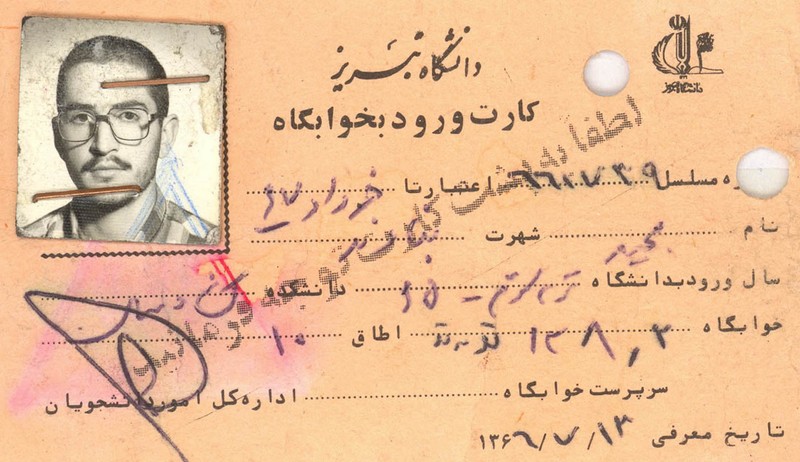 دانشگاه تبریز
دانشگاه تبریز
کارت ورود بخوابگاه
ره مسلسل ۶۶۱۰۷۳۹ اعتبار تا خرداد ۶۷
نام مجید شهرت
سال ورود بدانشگاه ۶۵ دانشکده
خوابگاه ۱۳۸٫۲ اطاق ۱۰
سرپرست خوابگاه اداره کل امور دانشجویان
تاریخ معرفی ۱۳۶۶/۷/۱۳
لطفا به پشت کارت توجه فرمائید